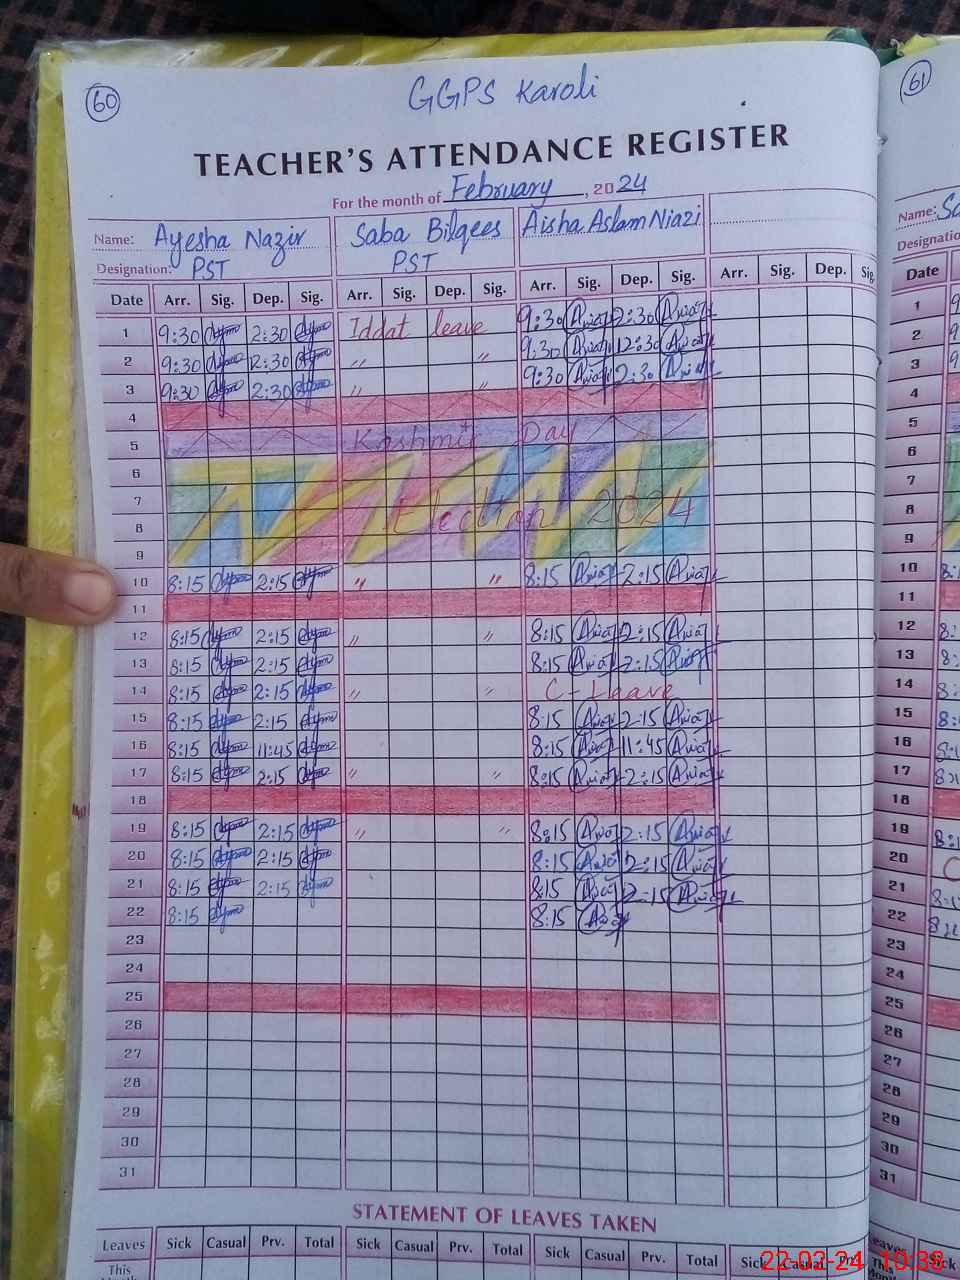 60
GGPS Karoli
61
TEACHER'S ATTENDANCE REGISTER
For the month of February, 2024
Name: Ayesha Nazir Saba Bilqees Aisha Aslam Niazi
Name:
Designation: PST PST
Date Arr. Sig. Dep. Sig. Arr. Sig. Dep. Sig. Arr. Sig. Dep. Sig. Arr. Sig. Dep. Sig. Date
1 9:30 2:30 Iddat leave 9:30 2:30 1
2 9:30 12:30 " " 9:30 12:30 2
3 9:30 2:30 " " 9:30 2:30 3
4 4
5 Kashmir Day 5
6 6
7 Election 2024 7
8 8
9 9
10 8:15 2:15 " " 8:15 2:15 10
11 11
12 8:15 2:15 " " 8:15 2:15 12
13 8:15 2:15 8:15 2:15 13
14 8:15 2:15 " " C-Leave 14
15 8:15 2:15 8:15 2:15 15
16 8:15 11:45 8:15 11:45 16
17 8:15 2:15 " " 8:15 2:15 17
18 18
19 8:15 2:15 " " 8:15 2:15 19
20 8:15 2:15 8:15 2:15 20
21 8:15 2:15 8:15 2:15 21
22 8:15 8:15 22
23 23
24 24
25 25
26 26
27 27
28 28
29 29
30 30
31 31
STATEMENT OF LEAVES TAKEN
Leaves Sick Casual Prv. Total Sick Casual Prv. Total Sick Casual Prv. Total Sick Casual Prv.
This
22-02-24 10:38